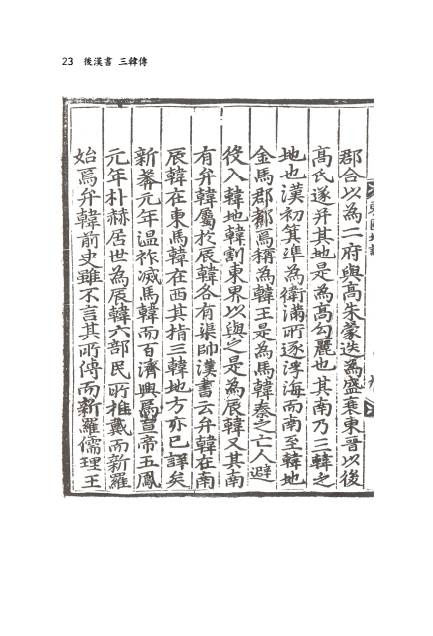 23 後漢書 三韓傳
郡合以為二府與高朱蒙迭為盛衰東晋以後
高氏遂并其地是為高句麗也其南乃三韓之
地也漢初箕準為衛滿所逐浮海而南至韓地
金馬郡都焉稱為韓王是為馬韓秦之亡人避
役入韓地韓割東界以與之是為辰韓又其南
有弁韓屬於辰韓各有渠帥漢書云弁韓在南
辰韓在東馬韓在西其指三韓地方亦已詳矣
新莽元年温祚滅馬韓而百濟興焉宣帝五鳳
元年朴赫居世為辰韓六部民所推戴而新羅
始焉弁韓前史雖不言其所傳而新羅儒理王